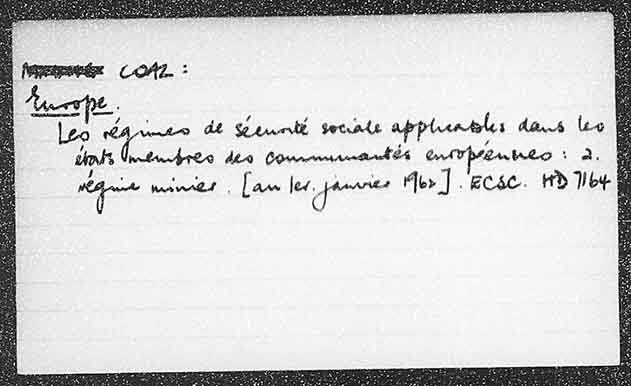 COAL :
Europe.
Les régimes de sécurité sociale applicables dans les
états membres des communautés européennes : 2.
régime minier. [au 1er. janvier 1962]. ECSC. HD 7164